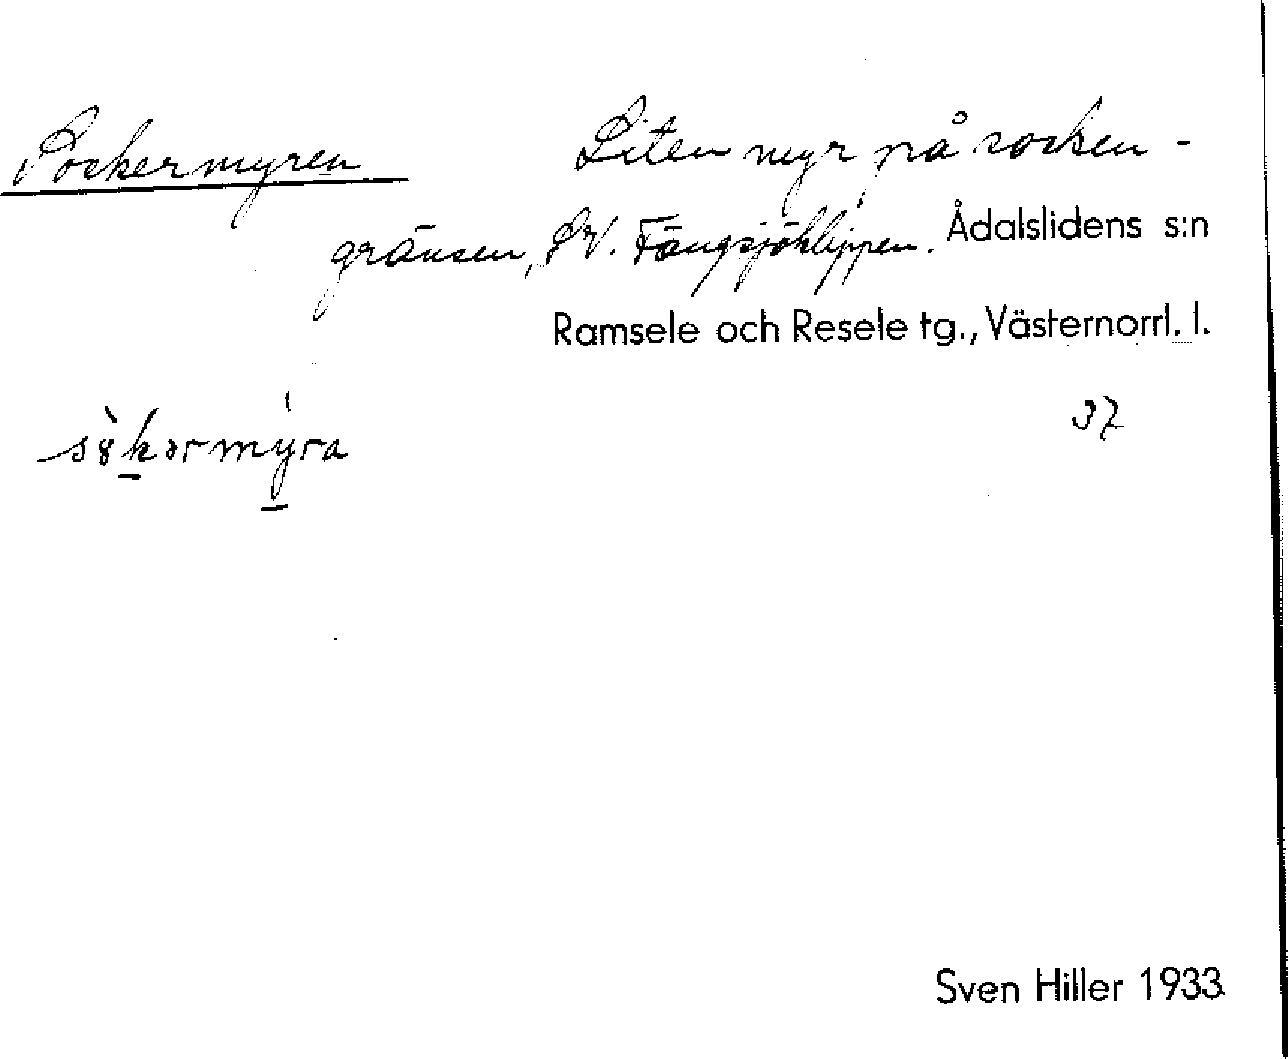 Sockermyren Liten myr på socken-
gränsen, SV. Fängsjöklippen. Ådalslidens s:n
Ramsele och Resele tg., Västernorrl. l.
37
Sven Hiller 1933